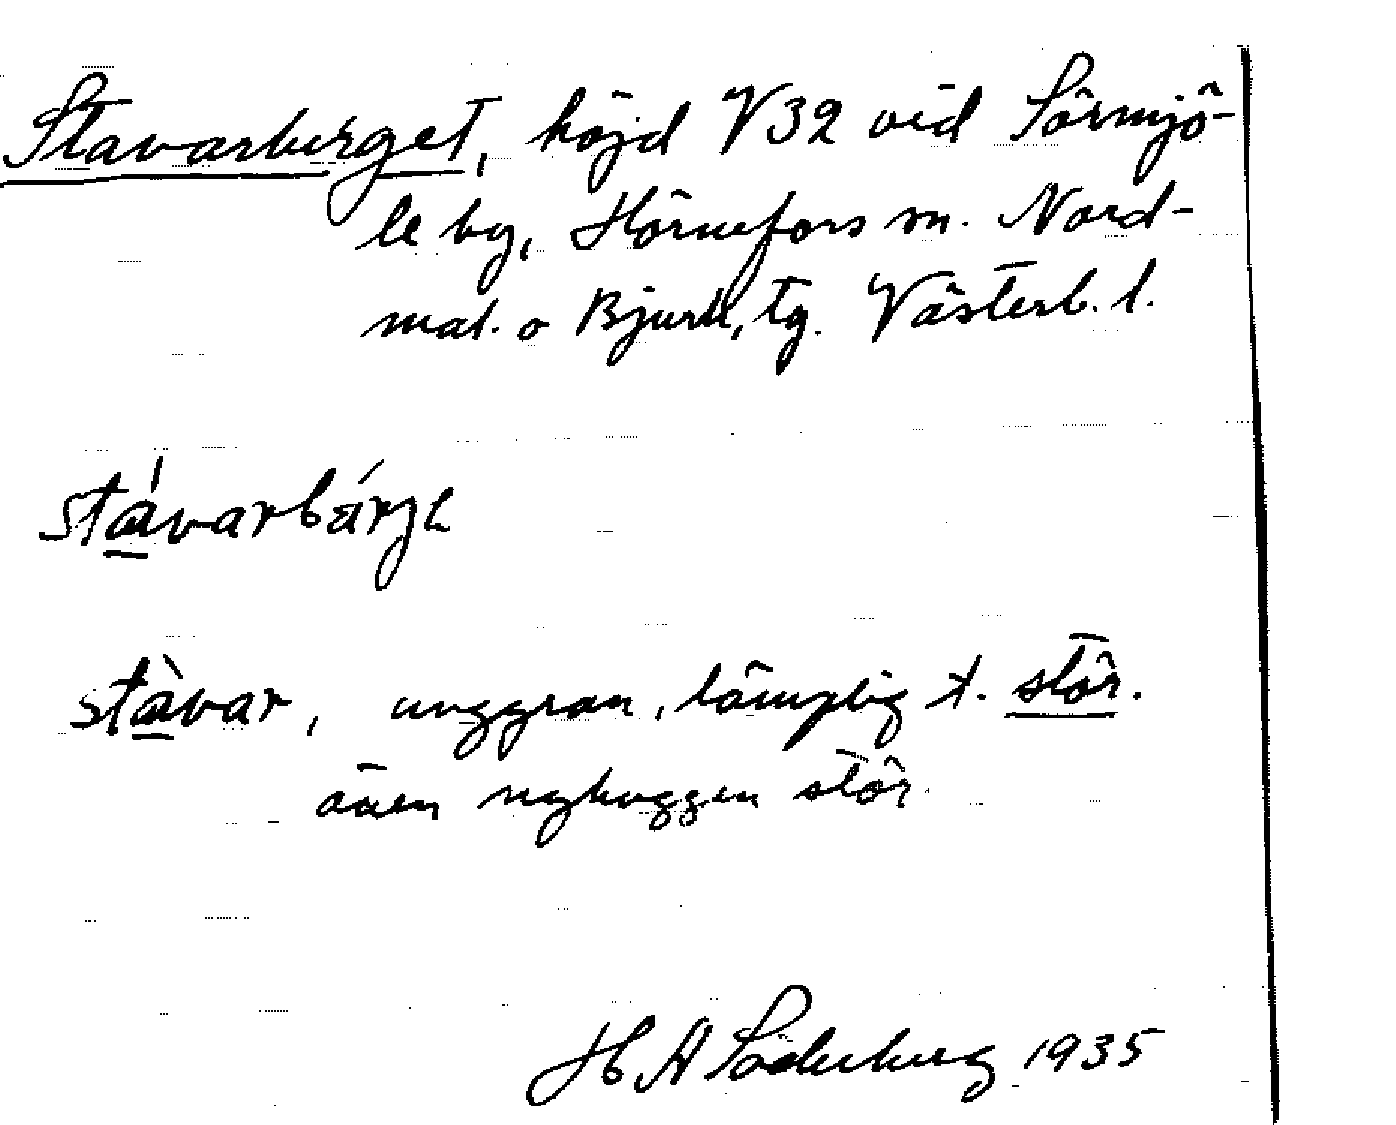 Stavarberget, höjd V32 vid Sörmjö-
le by, Hörnefors sn. Nord-
mal. o Bjurh. tg. Västerb. l.
stávarbárge
stàvar, unggran, lämplig t. stör.
även nyhuggen stör.
H A Söderberg 1935